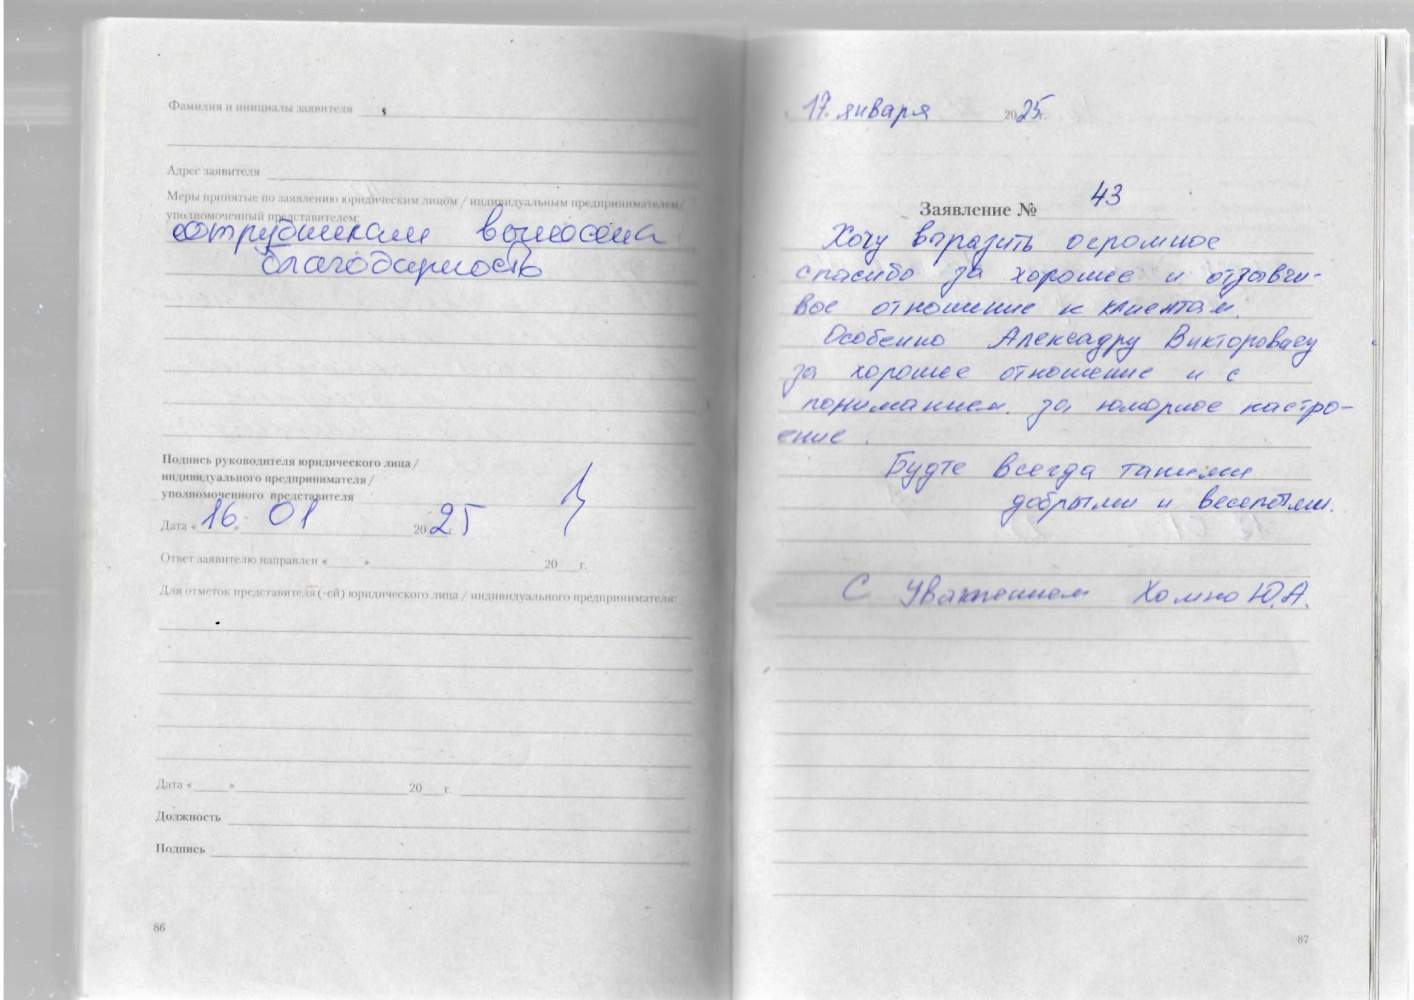 Фамилия и инициалы заявителя
Адрес заявителя
Меры принятые по заявлению юридическим лицом / индивидуальным предпринимателем/
уполномоченный представителем:
сотрудникам вынесена
благодарность
Подпись руководителя юридического лица /
индивидуального предпринимателя /
уполномоченного представителя
Дата « 16 » 01 20 25 г.
Ответ заявителю направлен « » 20 г.
Для отметок представителя (-ей) юридического лица / индивидуального предпринимателя:
Дата « » 20 г.
Должность
Подпись
86
17. января 2025г.
Заявление № 43
Хочу выразить огромное
спасибо за хорошее и отзывчи-
вое отношение к клиентам.
Особенно Александру Викторовичу
за хорошее отношение и с
пониманием. за юморное настро-
ение.
Будте всегда такими
добрыми и веселыми.
С Уважением Хомко Ю.А.
87